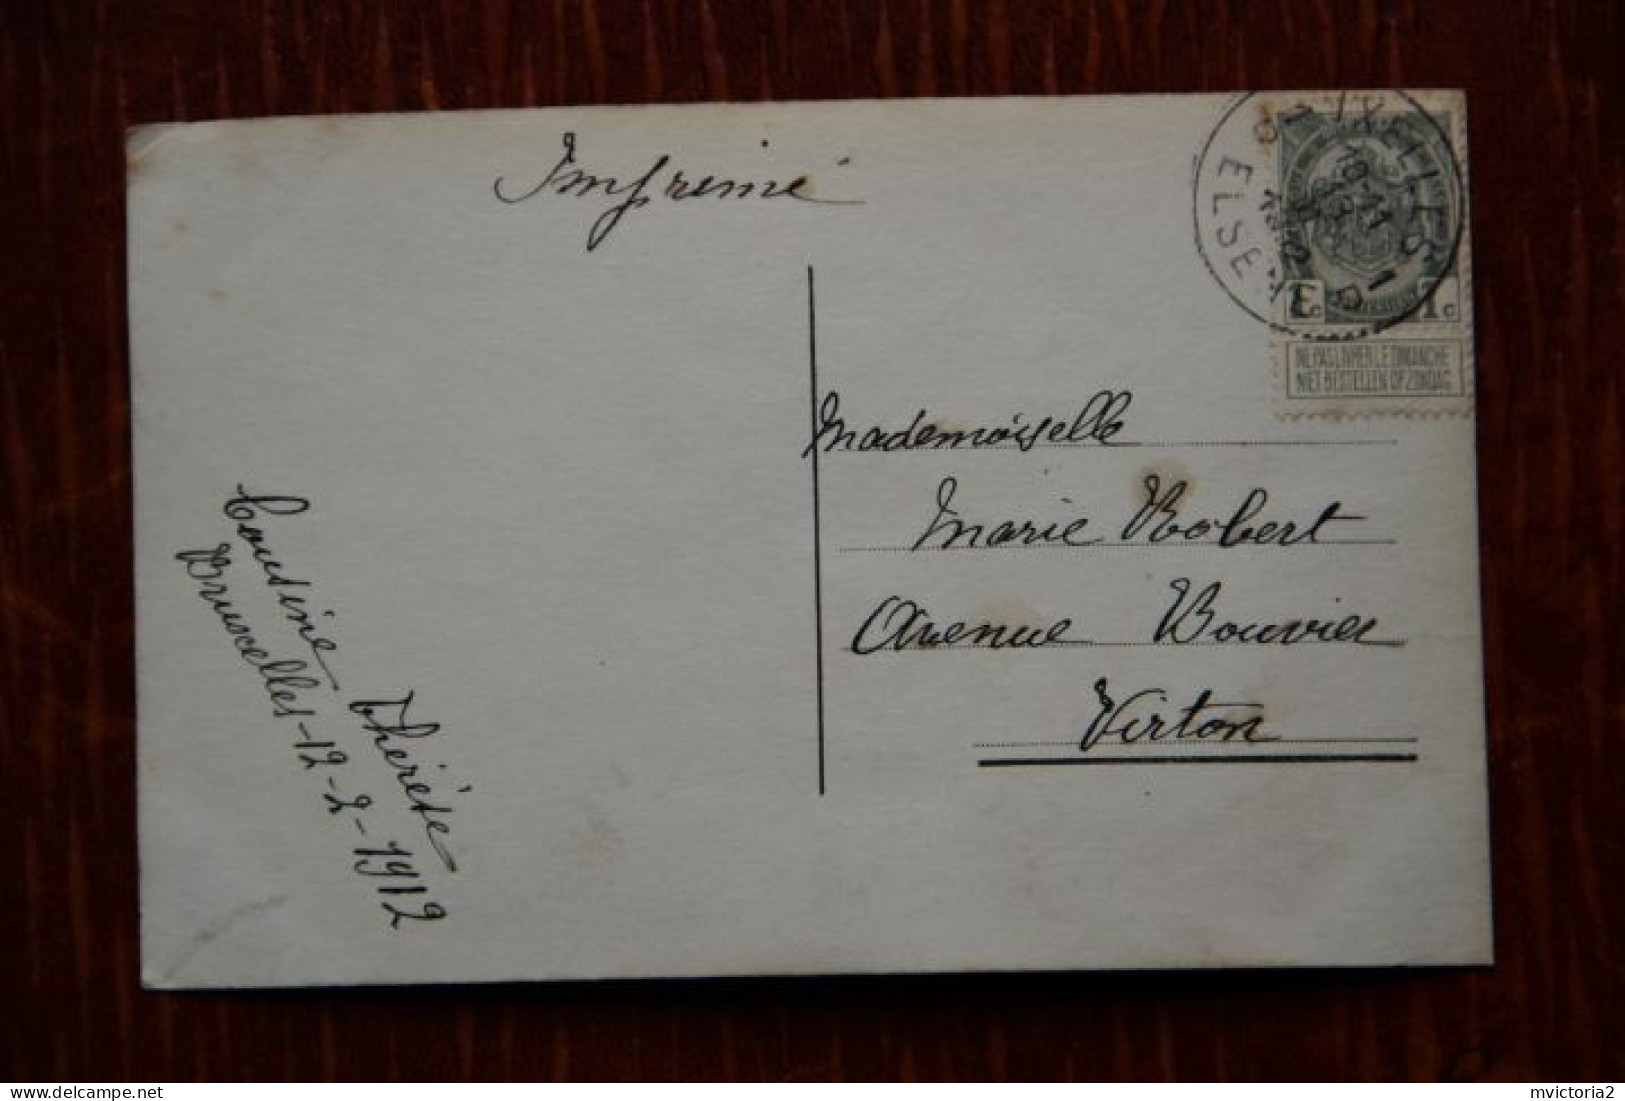 Imprimé
IXELLES
ELSENE
1c
1c
NE PAS LIVRER LE DIMANCHE
NIET BESTELLEN OP ZONDAG
Mademoiselle
Marie Robert
Avenue Bouvier
Virton
Cousine Thérèse
Bruxelles-12-2-1912
mvictoria2